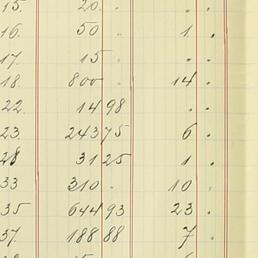 15. 20. "
16. 50 " 1 .
17. 15 "
18. 800 " 14 .
22. 14 98 " .
23 243 75 6 .
28 31 25 1 .
33 310 " 10 .
35 644 93 23 .
37. 188 88 7 .